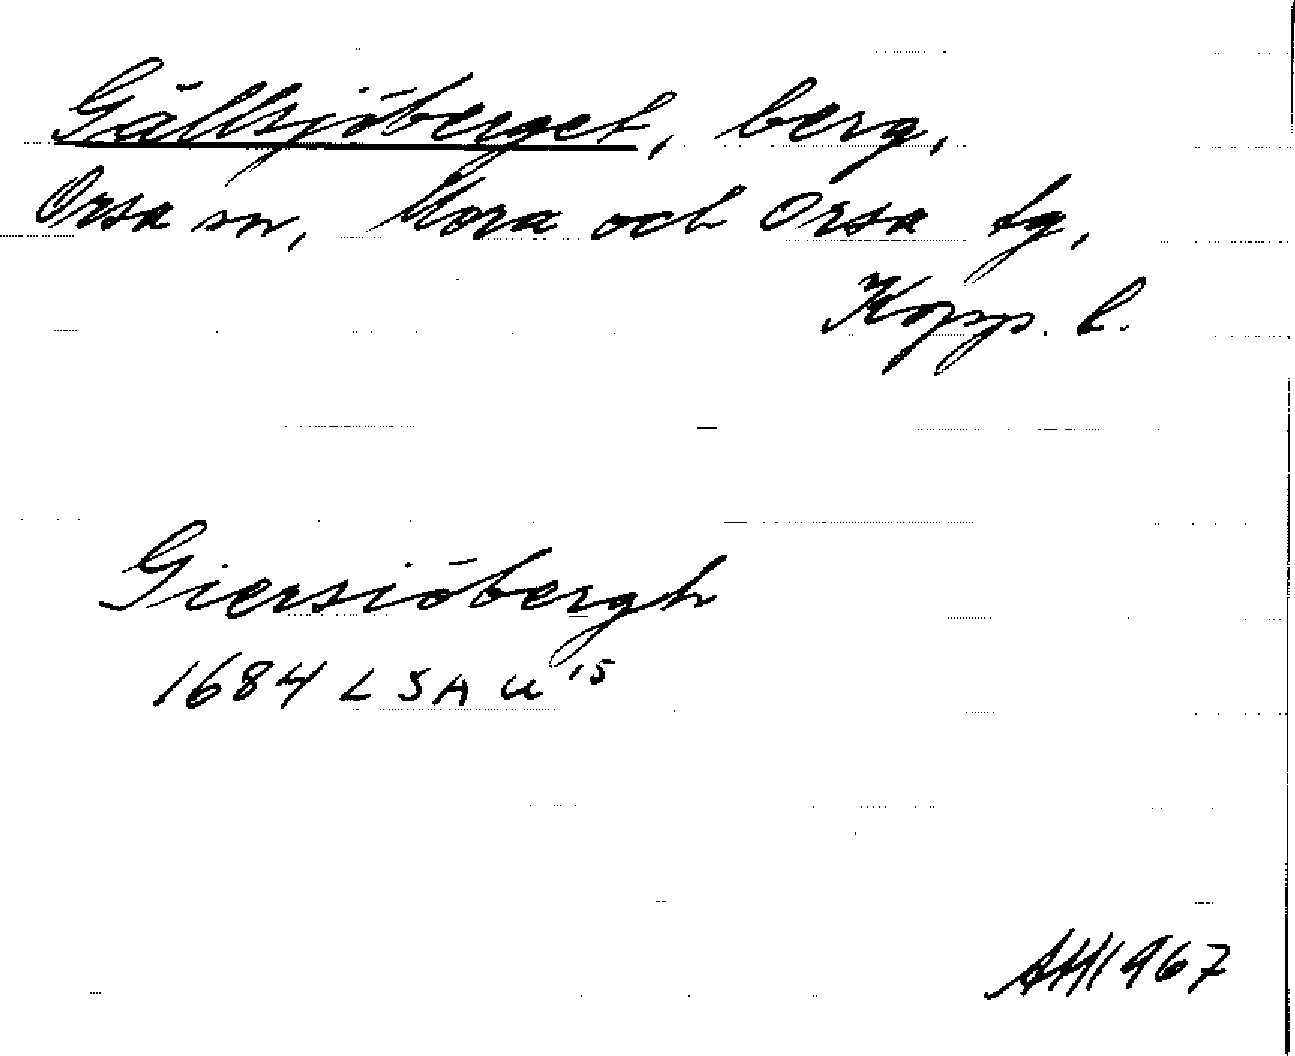 Gällsjöberget, berg,
Orsa sn, Mora och Orsa tg,
Kopp. l.
Giersiöbergh
1684 LSA U 15
AH 1967